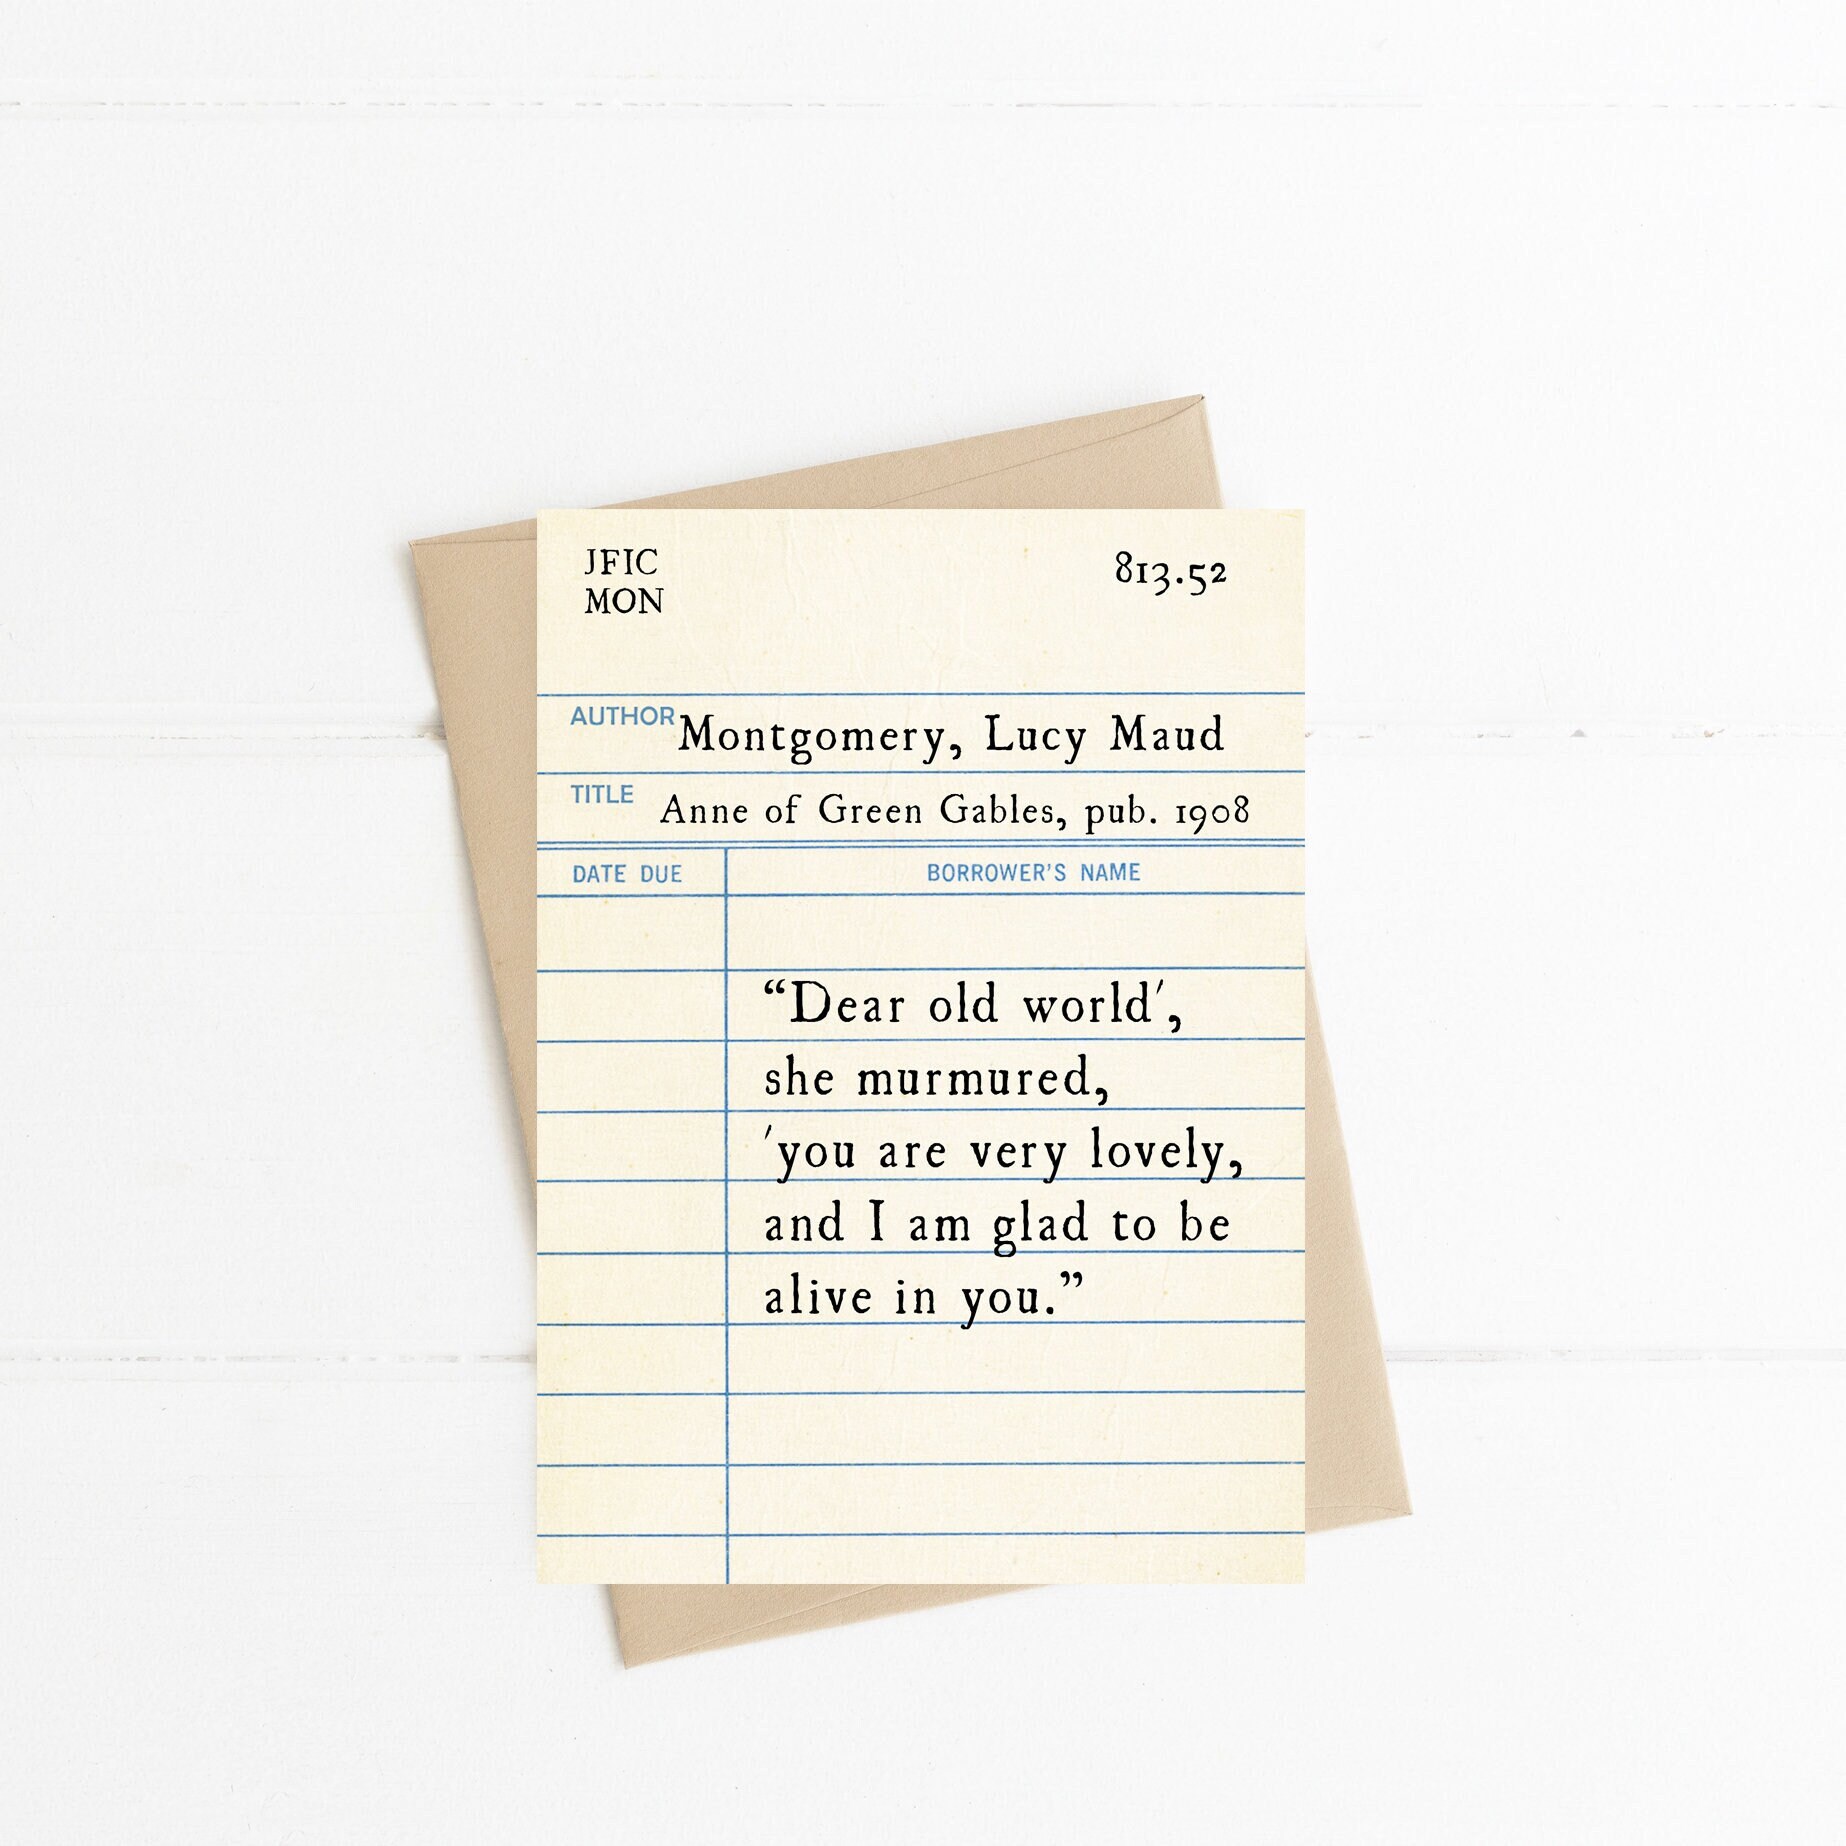 JFIC
MON
813.52
AUTHOR Montgomery, Lucy Maud
TITLE Anne of Green Gables, pub. 1908
DATE DUE BORROWER'S NAME
“Dear old world',
she murmured,
'you are very lovely,
and I am glad to be
alive in you.”